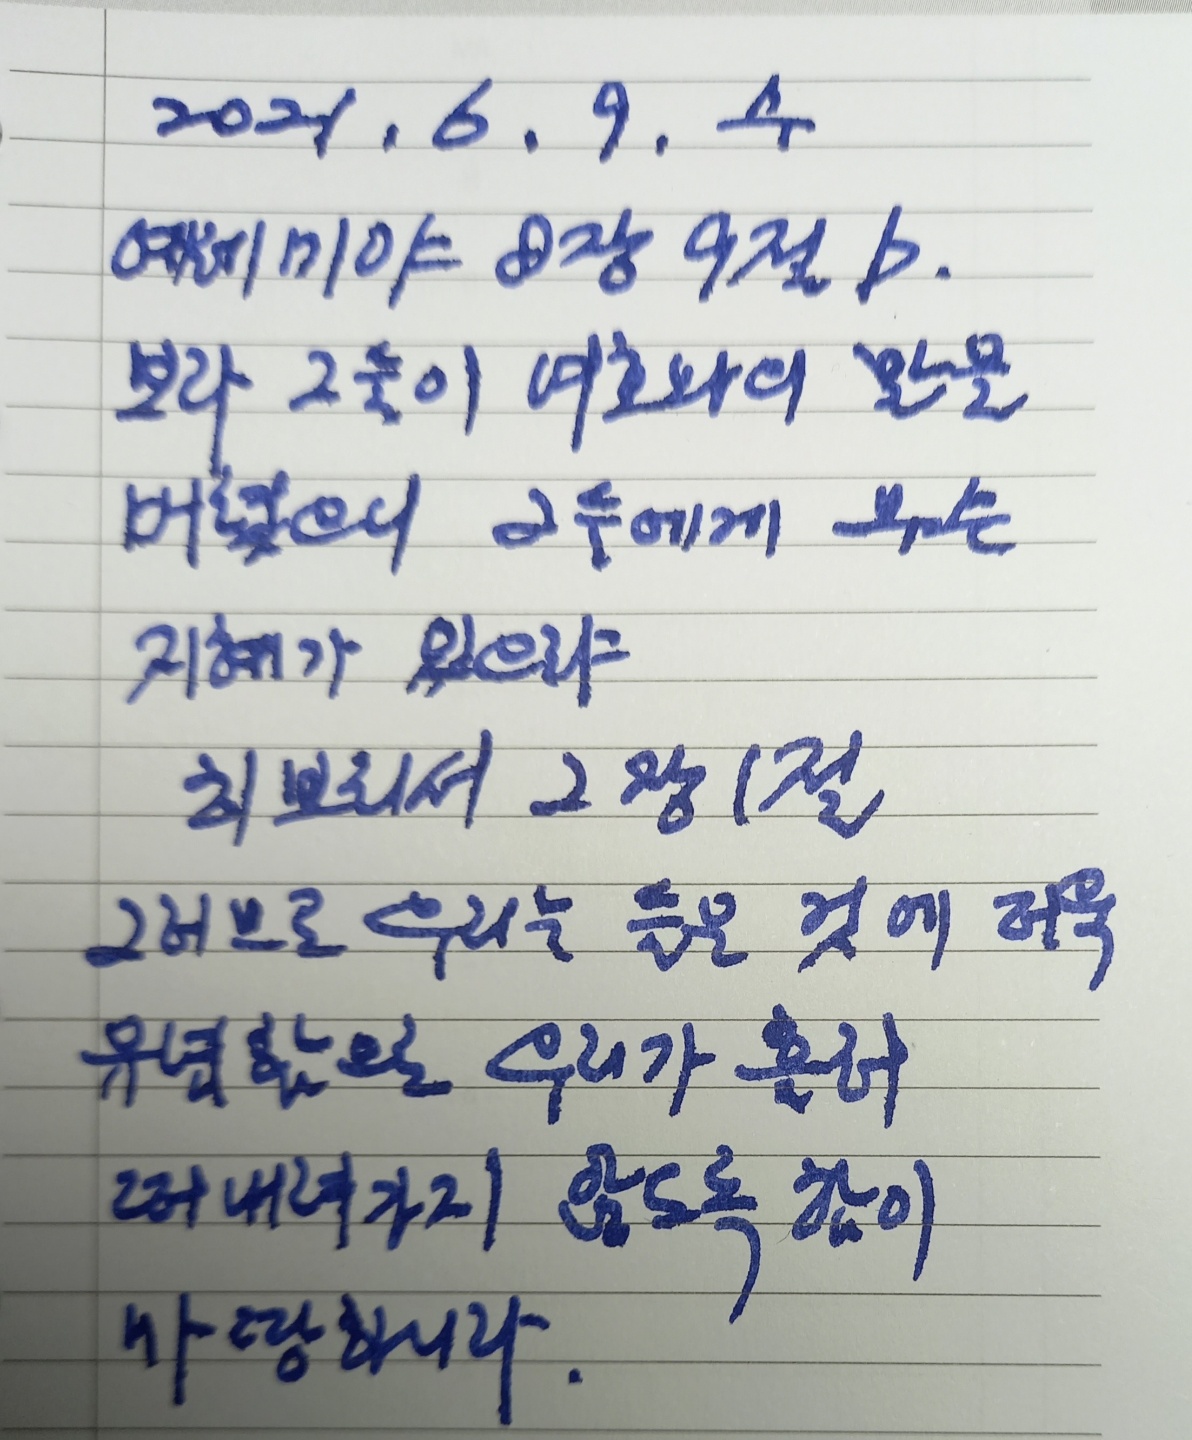 2021. 6. 9. 수
예레미야 8장 9절 b.
보라 그들이 여호와의 말을
버렸으니 그들에게 무슨
지혜가 있으랴
히브리서 2장 1절
그러므로 우리는 들은 것에 더욱
유념함으로 우리가 흘러
떠내려가지 않도록 함이
마땅하니라.